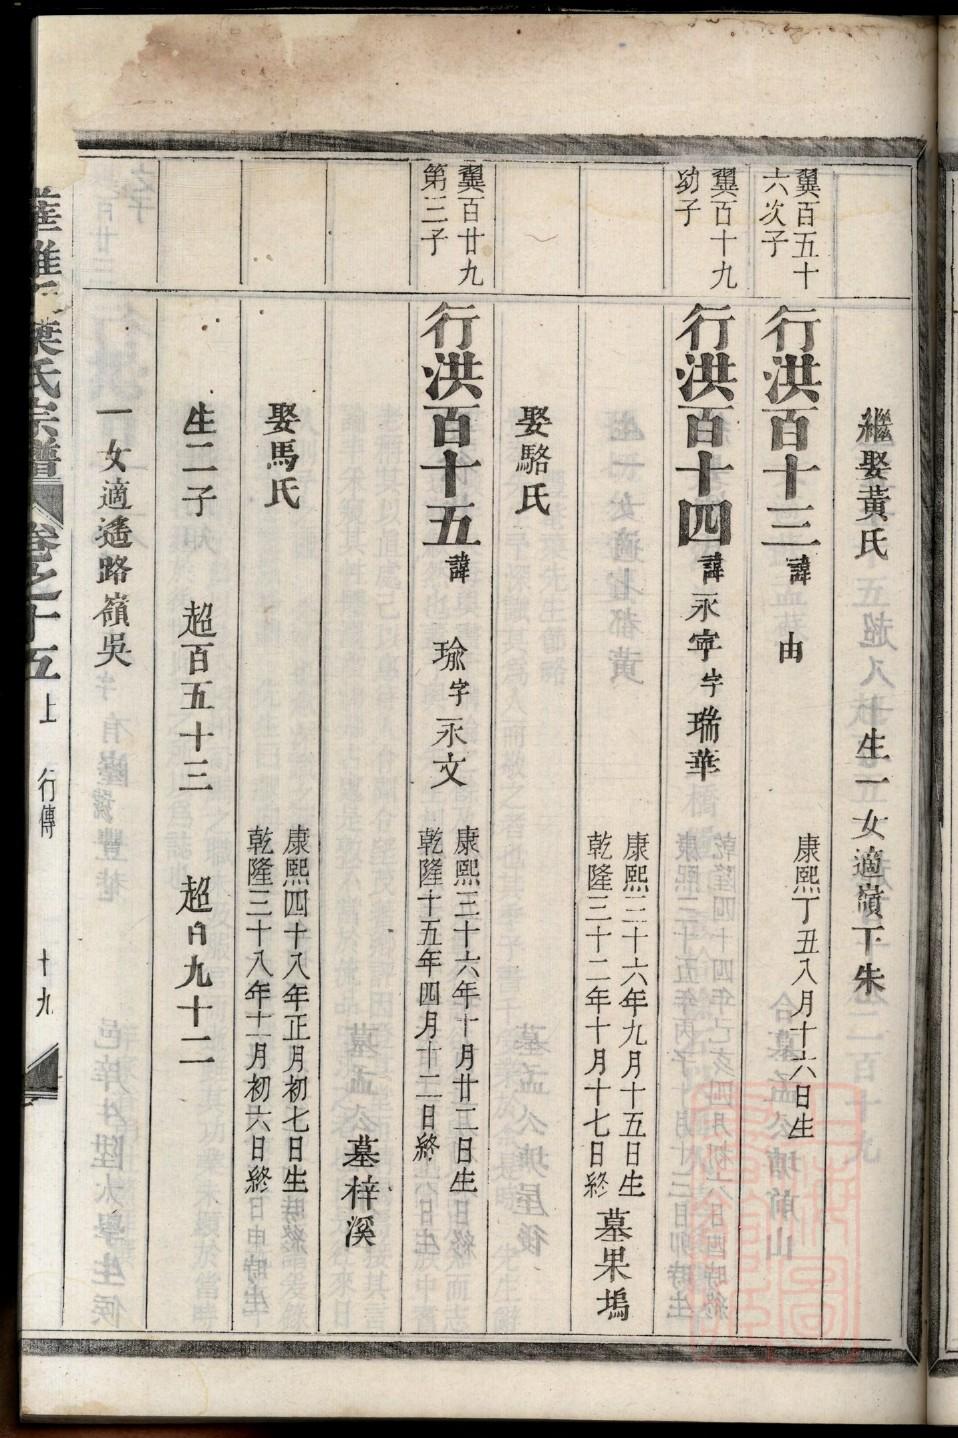 繼娶黃氏
生一女適嶺下朱
翼百五十
六次子
行洪百十三
諱
由
康熙丁丑八月十六日生
翼百十九
幼子
行洪百十四
諱永寧字瑞華
康熙三十六年九月十五日生
乾隆三十二年十月十七日終
墓果塢
娶駱氏
翼百廿九
第三子
行洪百十五
諱
瑜字永文
康熙三十六年十月廿二日生
乾隆十五年四月十二日終
墓梓溪
娶馬氏
康熙四十八年正月初七日生
乾隆三十八年十一月初六日終
生二子
超百五十三
超百九十二
一女適遙路嶺吳
氏宗譜
卷之十五
上
行傳
十九